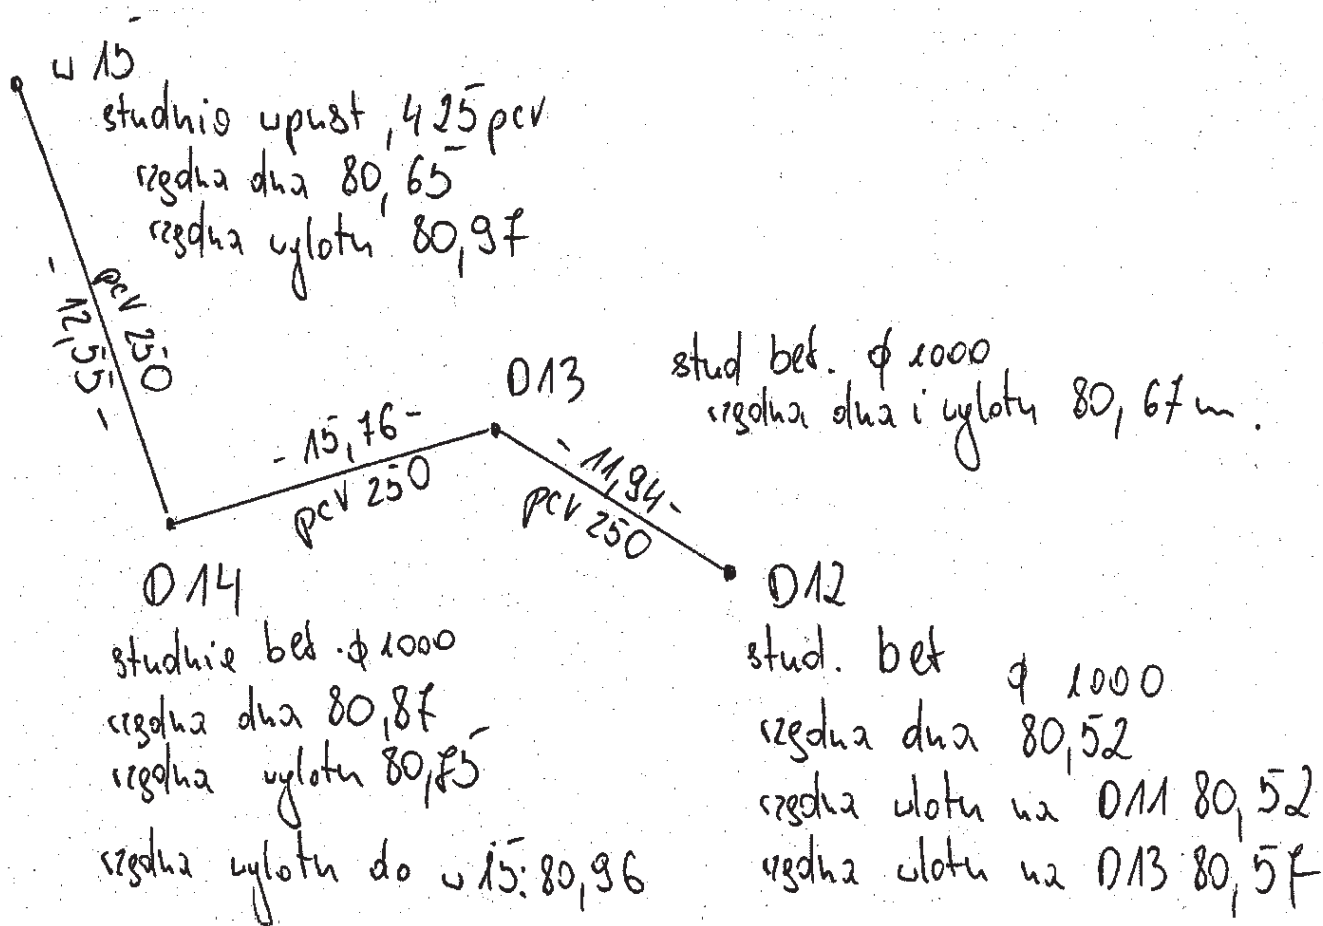 w 15
studnia wpust, 425 pcv
rzędna dna 80,65
rzędna wylotu 80,97
pcv 250
- 12,55 -
D13
stud bet. ϕ 1000
rzędna dna i wylotu 80,67 m.
- 15,76 -
pcv 250
- 11,94 -
pcv 250
D14
studnia bet. ϕ 1000
rzędna dna 80,87
rzędna wylotu 80,75
rzędna wylotu do w 15: 80,96
D12
stud. bet ϕ 1000
rzędna dna 80,52
rzędna wlotu na D11 80,52
rzędna wlotu na D13 80,57